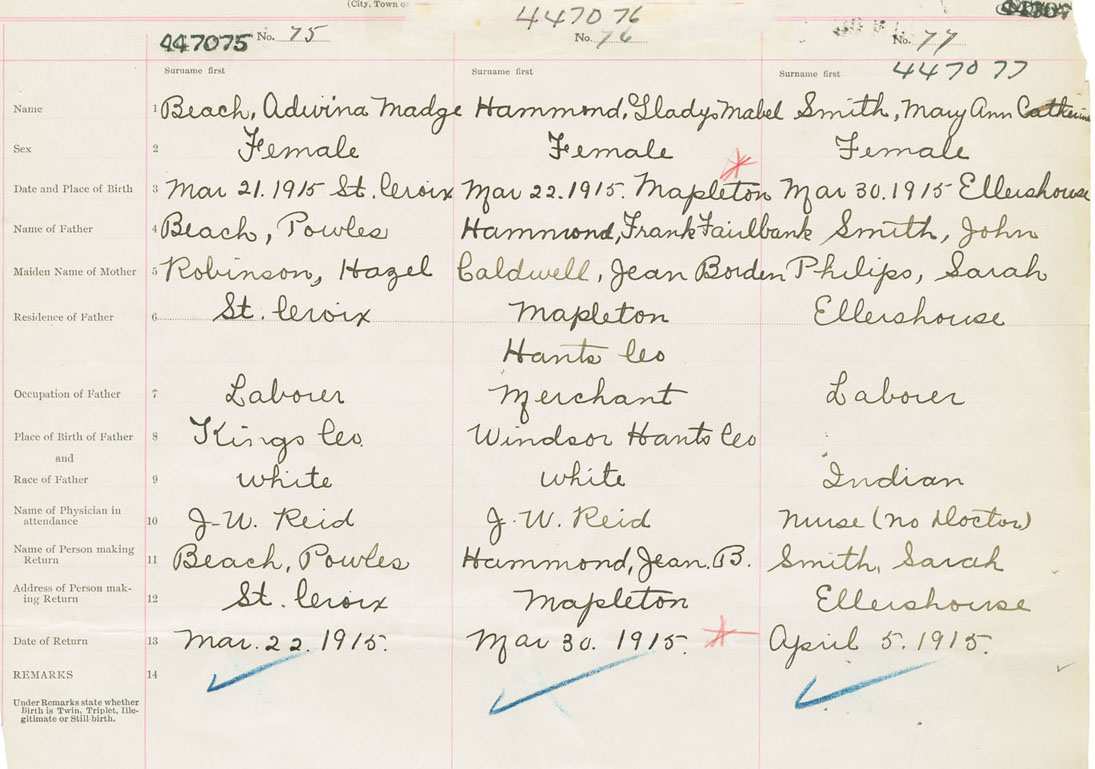 (City, Town o
447076
447075 No. 75 No. 76 No. 77
447077
Surname first Surname first Surname first
Name 1 Beach, Adwina Madge Hammond, Gladys Mabel Smith, Mary Ann Catherine
Sex 2 Female Female Female
Date and Place of Birth 3 Mar 21. 1915 St. Croix Mar 22. 1915. Mapleton Mar 30. 1915 Ellershouse
Name of Father 4 Beach, Powles Hammond, Frank Fairlbank Smith, John
Maiden Name of Mother 5 Robinson, Hazel Caldwell, Jean Borden Philips, Sarah
Residence of Father 6 St. Croix Mapleton Ellershouse
Hants Co
Occupation of Father 7 Laborer Merchant Laborer
Place of Birth of Father 8 Kings Co. Windsor Hants Co
and
Race of Father 9 White White Indian
Name of Physician in
attendance 10 J. W. Reid J. W. Reid Nurse (no Doctor)
Name of Person making
Return 11 Beach, Powles Hammond, Jean. B. Smith, Sarah
Address of Person mak-
ing Return 12 St. Croix Mapleton Ellershouse
Date of Return 13 Mar. 22. 1915. Mar 30. 1915. April 5. 1915.
REMARKS 14
Under Remarks state whether
Birth is Twin, Triplet, Ille-
gitimate or Still-birth.